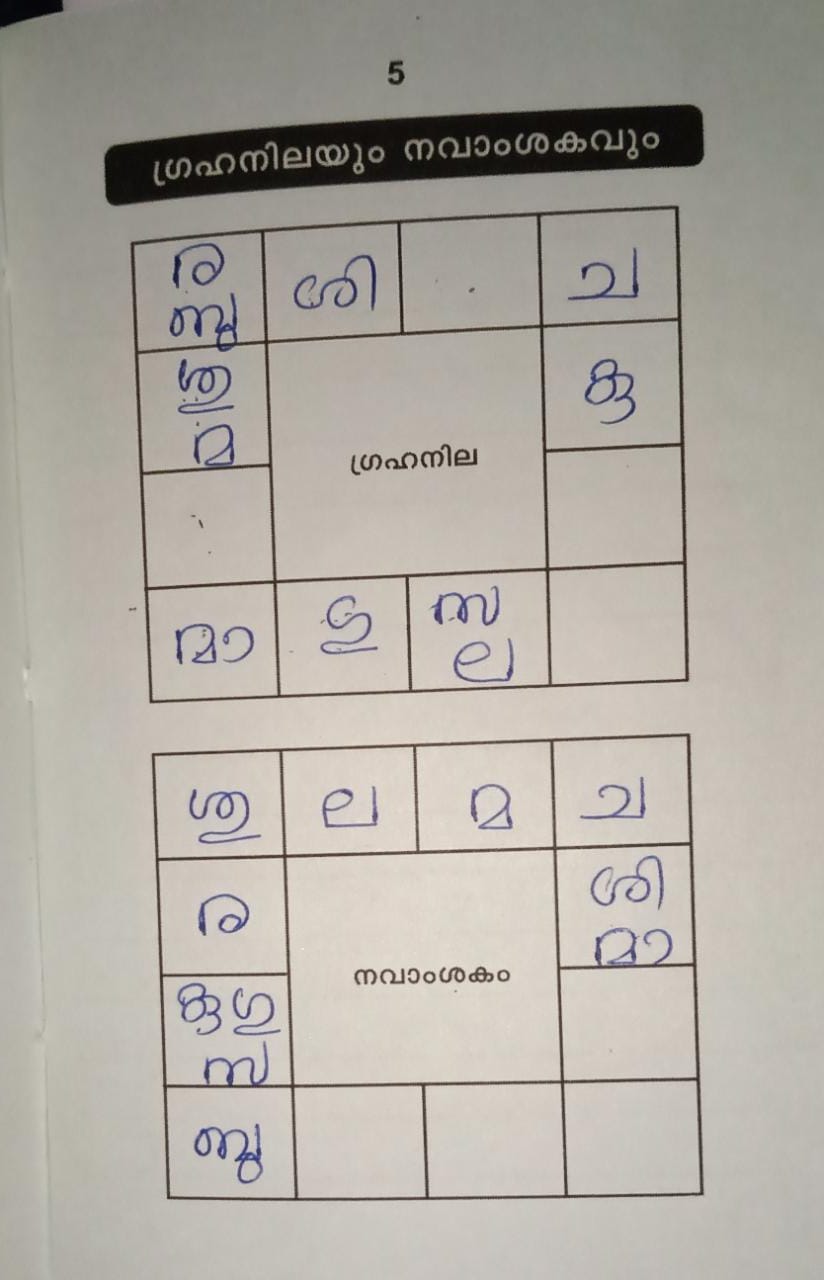 5
ഗ്രഹനിലയും നവാംശകവും
ര ശി ച
ബു
ശു കു
മ
ഗ്രഹനില
മാ ഗു സ
ല
ശു ല മ ച
ര ശി
മാ
നവാംശകം
കു ഗു
സ
ബു